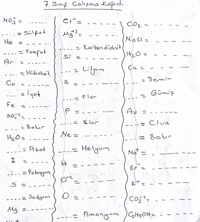 7. Sınıf Çalışma Kağıdı
NO₃⁻ = ------
------ = Sülfat
He = ------
------ = Fosfat
Ar = ------
------ = Hidroksit
Cu = ------
------ = İyot
Fe = ------
SO₄²⁻ = ------
------ = Bakır
H₂O = ------
------ = Azot
I = ------
------ = Potasyum
S = ------
------ = Sodyum
Mg = ------
Cl⁻ = ------
Mg²⁺ = ------
------ = Karbondioksit
Si = ------
------ = Lityum
B = ------
------ = Flor
P = ------
------ = Klor
Ne = ------
------ = Helyum
H = ------
O⁻² = ------
O = ------
------ = Amonyum
CO₂ = ------
NaCl = ------
H₂O = ------
Ca = ------
------ = Demir
------ = Gümüş
Au = ------
------ = Civa
------ = Bakır
Na⁺ = ------
Br⁻ = ------
K⁺ = ------
CO₃²⁻ = ------
C₆H₁₂O₆ = ------